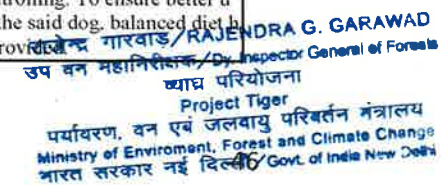 rolling. To ensure better u
the said dog, balanced diet h
provided
राजेन्द्र गारवाड़/RAJENDRA G. GARAWAD
उप वन महानिरीक्षक/Dy. Inspector General of Forests
व्याघ्र परियोजना
Project Tiger
पर्यायरण, वन एवं जलवायु परिवर्तन मंत्रालय
Ministry of Enviroment, Forest and Climate Change
भारत सरकार नई दिल्ली/Govt. of India New Delhi
46